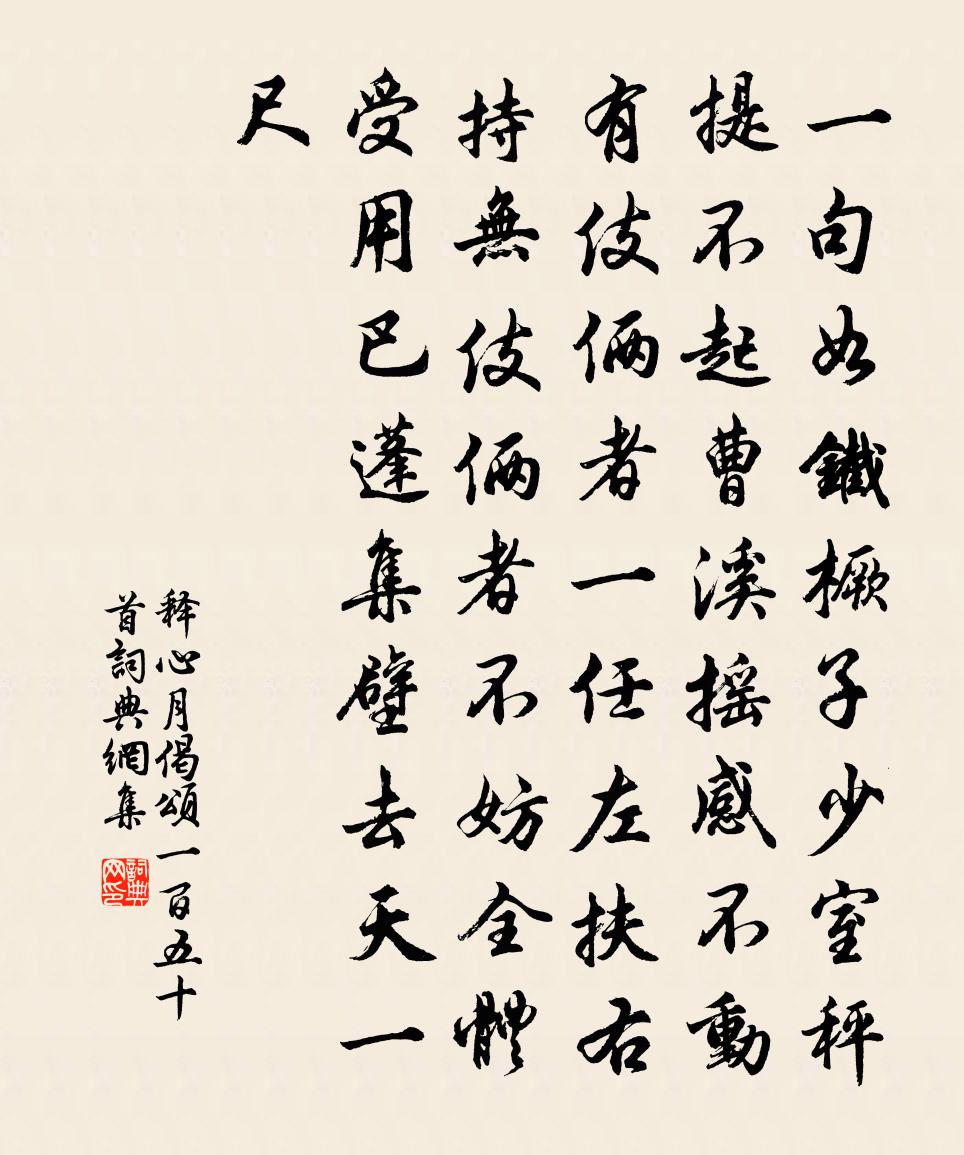 一句如鐵橛子少室秤
提不起曹溪摇感不動
有伎倆者一任左扶右
持無伎倆者不妨全體
受用巴蓬集壁去天一
尺
释心月偈頌一百五十
首詞典網集
詞典
网印